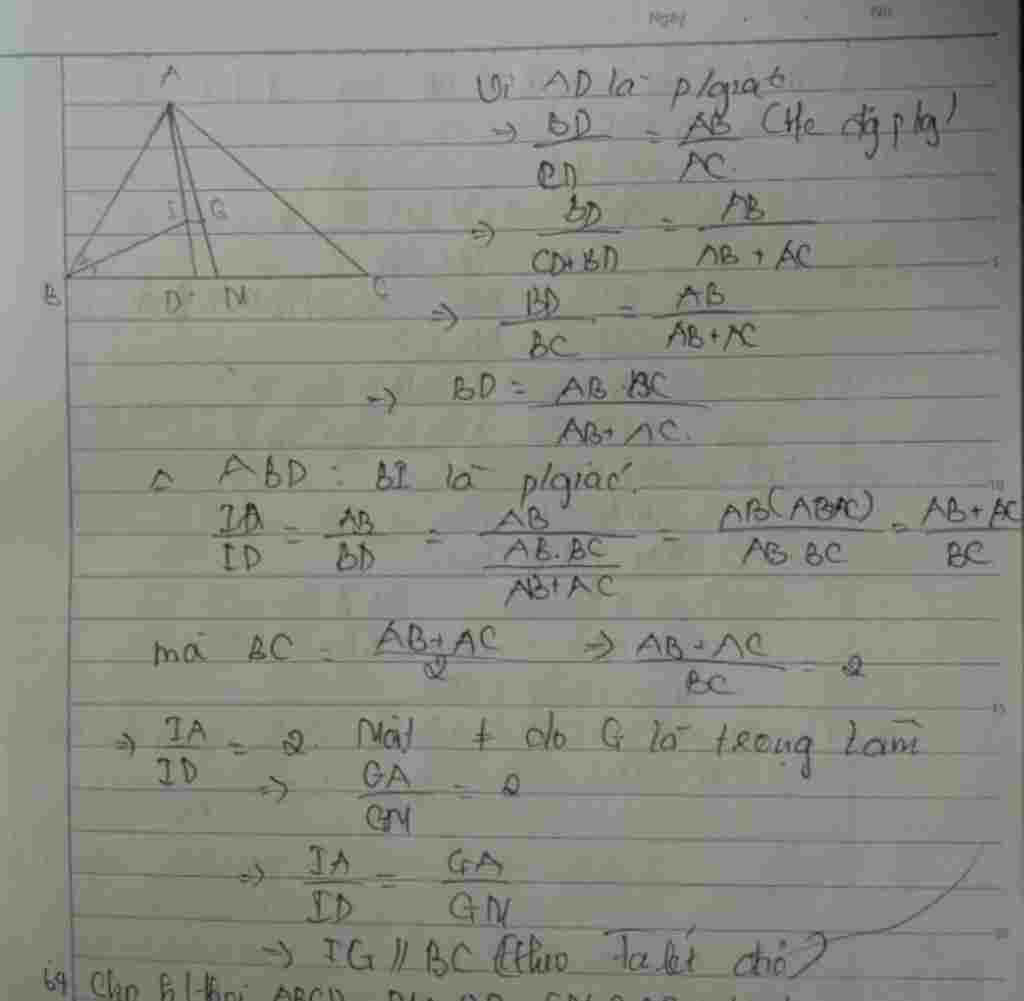 Ngày No
A
I G
B D M C
Vì AD là p/giác
→ BD/CD = AB/AC (t/c đg p/g)
⇒ BD/CD+BD = AB/AB + AC
⇒ BD/BC = AB/AB+AC
→ BD = AB . BC/AB+ AC.
△ ABD : BI là p/giác.
IA/ID = AB/BD = AB/(AB.BC/AB+AC) = AB(ABAC)/AB.BC = AB+AC/BC
mà BC = AB+AC/2 ⇒ AB+AC/BC = 2
⇒ IA/ID = 2. Mặt ≠ do G là trọng tâm
⇒ GA/GM = 2
⇒ IA/ID = GA/GM
→ IG // BC (theo Talét đảo)
64 Cho ABCD